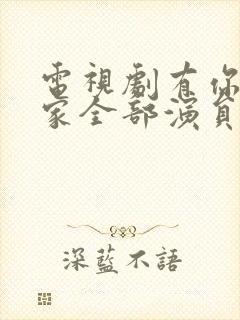 電視劇有你
家全部演員
深藍不語